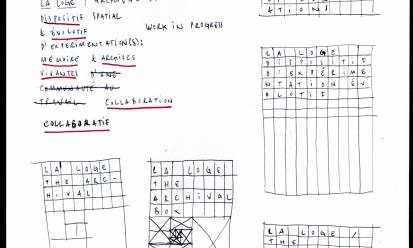 LA LOGE / ARCHIVAL
DISPOSITIF SPATIAL
& ÉVOLUTIF
D'EXPÉRIMENTATION(S):
MÉMOIRE & ARCHIVES
VIVANTES D'UNE
COMMUNAUTÉ AU
TRAVAIL COLLABORATION
COLLABORATIF
WORK IN PROGRESS
ATIONS
LA LOGE
DISPOSITIF
D'EXPÉRIME
NTATION ÉV
OLUTIF
LA LOGE
THE ARC-
HIVAL
LA LOGE
THE
ARCHIVAL
BOX
LA LOGE /
THE